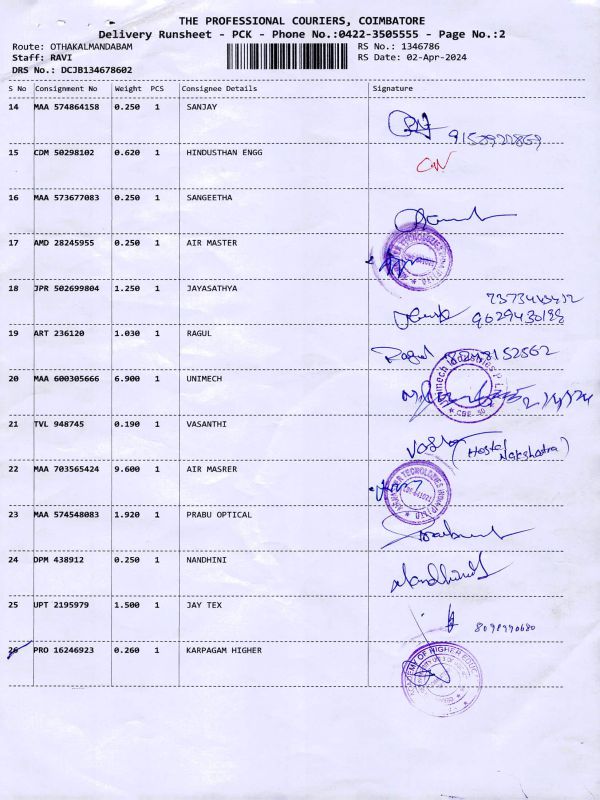 THE PROFESSIONAL COURIERS, COIMBATORE
Delivery Runsheet - PCK - Phone No.:0422-3505555 - Page No.:2
Route: OTHAKALMANDABAM RS No.: 1346786
Staff: RAVI RS Date: 02-Apr-2024
DRS No.: DCJB134678602
S No Consignment No Weight PCS Consignee Details Signature
14 MAA 574864158 0.250 1 SANJAY
15 CDM 50298102 0.620 1 HINDUSTHAN ENGG
16 MAA 573677083 0.250 1 SANGEETHA
17 AMD 28245955 0.250 1 AIR MASTER
18 JPR 502699804 1.250 1 JAYASATHYA
9629430188
19 ART 236120 1.030 1 RAGUL Ragul
20 MAA 600305666 6.900 1 UNIMECH
21 TVL 948745 0.190 1 VASANTHI (Hostel Nakshatra)
22 MAA 703565424 9.600 1 AIR MASRER
23 MAA 574548083 1.920 1 PRABU OPTICAL
24 DPM 438912 0.250 1 NANDHINI Nandhini
25 UPT 2195979 1.500 1 JAY TEX 8098990680
26 PRO 16246923 0.260 1 KARPAGAM HIGHER